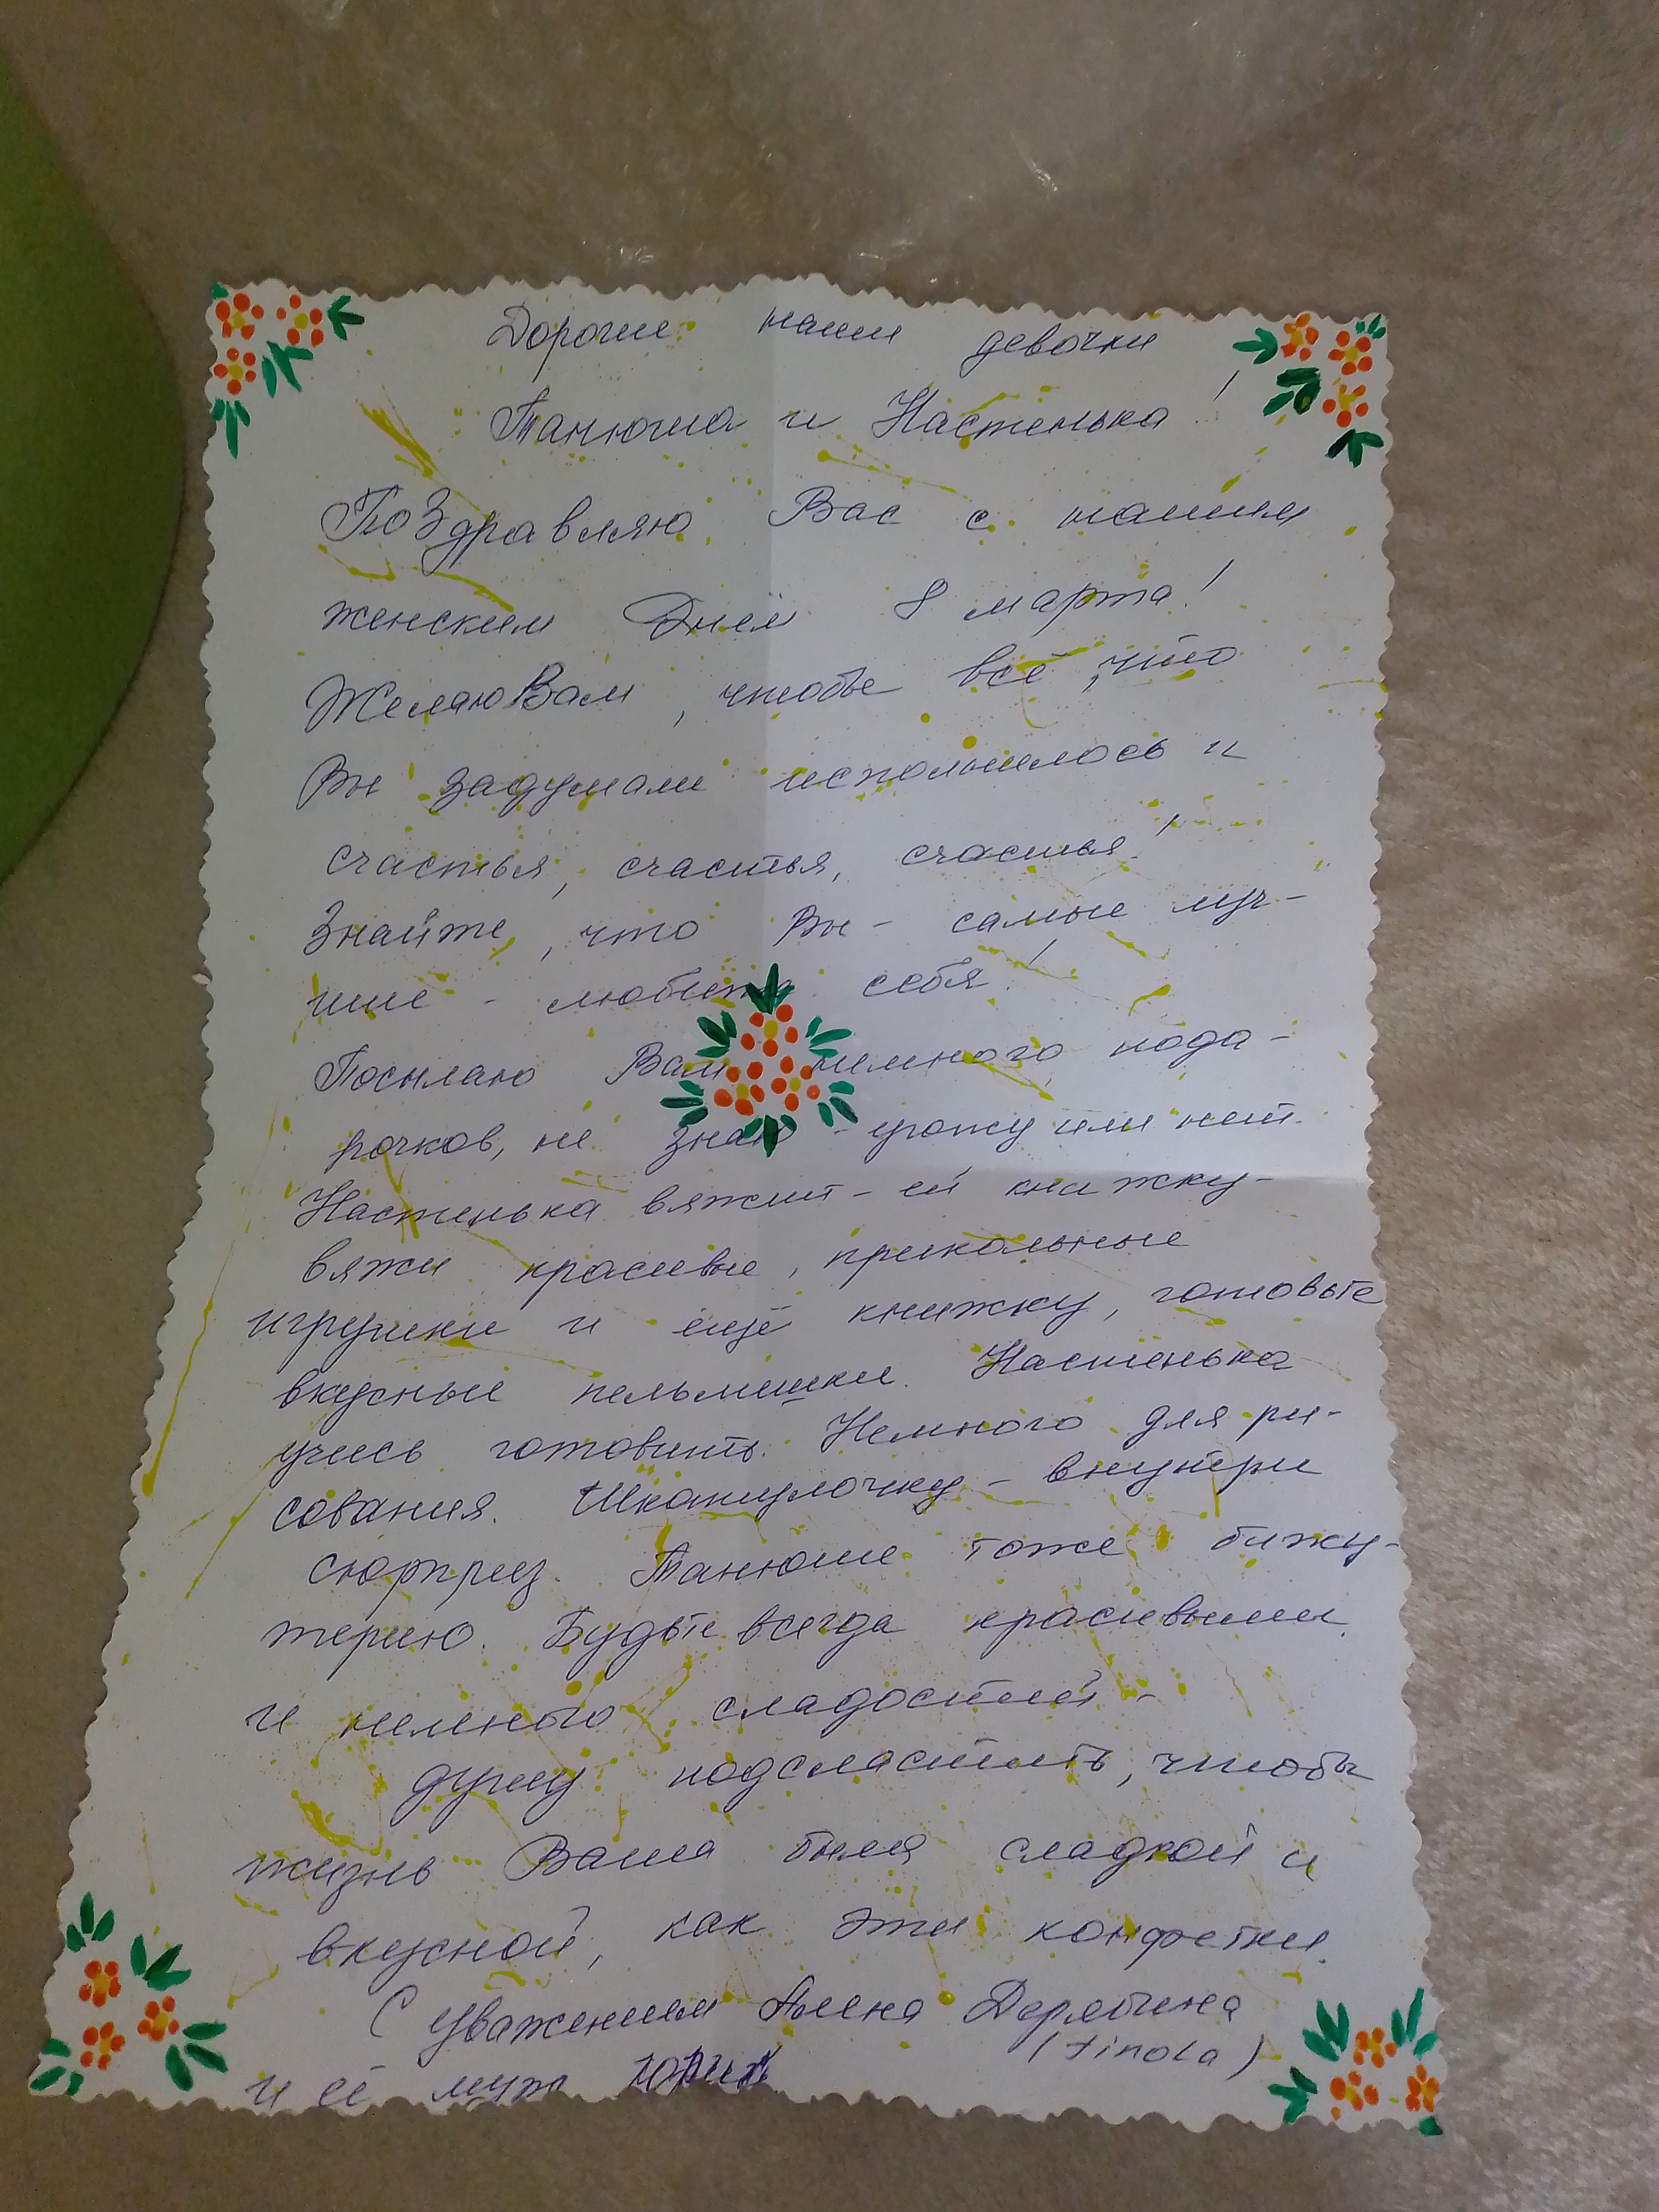 Дорогие наши девочки
Танюша и Настенька!
Поздравляю Вас с нашим
женским Днём 8 марта!
Желаю Вам, чтобы всё, что
Вы задумали исполнилось и
счастья, счастья, счастья!
Знайте, что Вы - самые луч-
шие - любите себя!
Посылаю Вам немного пода-
рочков, не знаю - угожу или нет.
Настенька вяжит - ей книжку -
вяжи красивые, прикольные
игрушки и ещё книжку, готовьте
вкусные пельмешки. Настенька
учись готовить. Немного для ри-
сования. Шкатулочку - внутри
сюрприз. Танюше тоже бижу-
терию. Будьте всегда красивыми.
и немного сладостей -
душу подсластить, чтобы
жизнь Ваша была сладкой и
вкусной, как эти конфетки.
С уважением Алена Дерябина
(finola)
и её муж Юрий